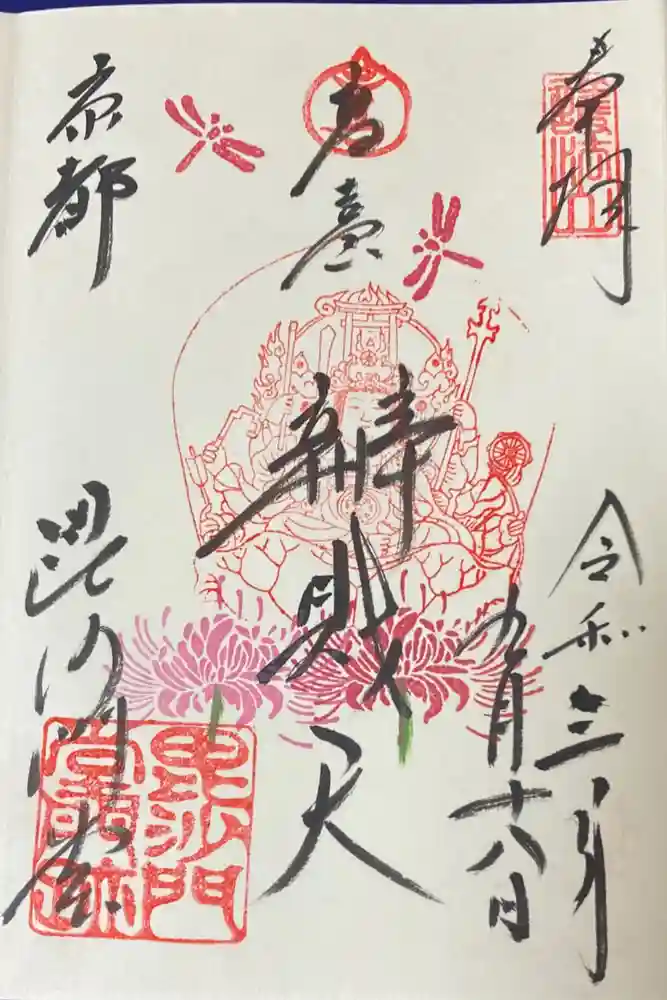 奉拝
護法山
令和三年
九月十八日
高臺
辨財天
京都
毘沙門堂
毘沙門
堂門跡